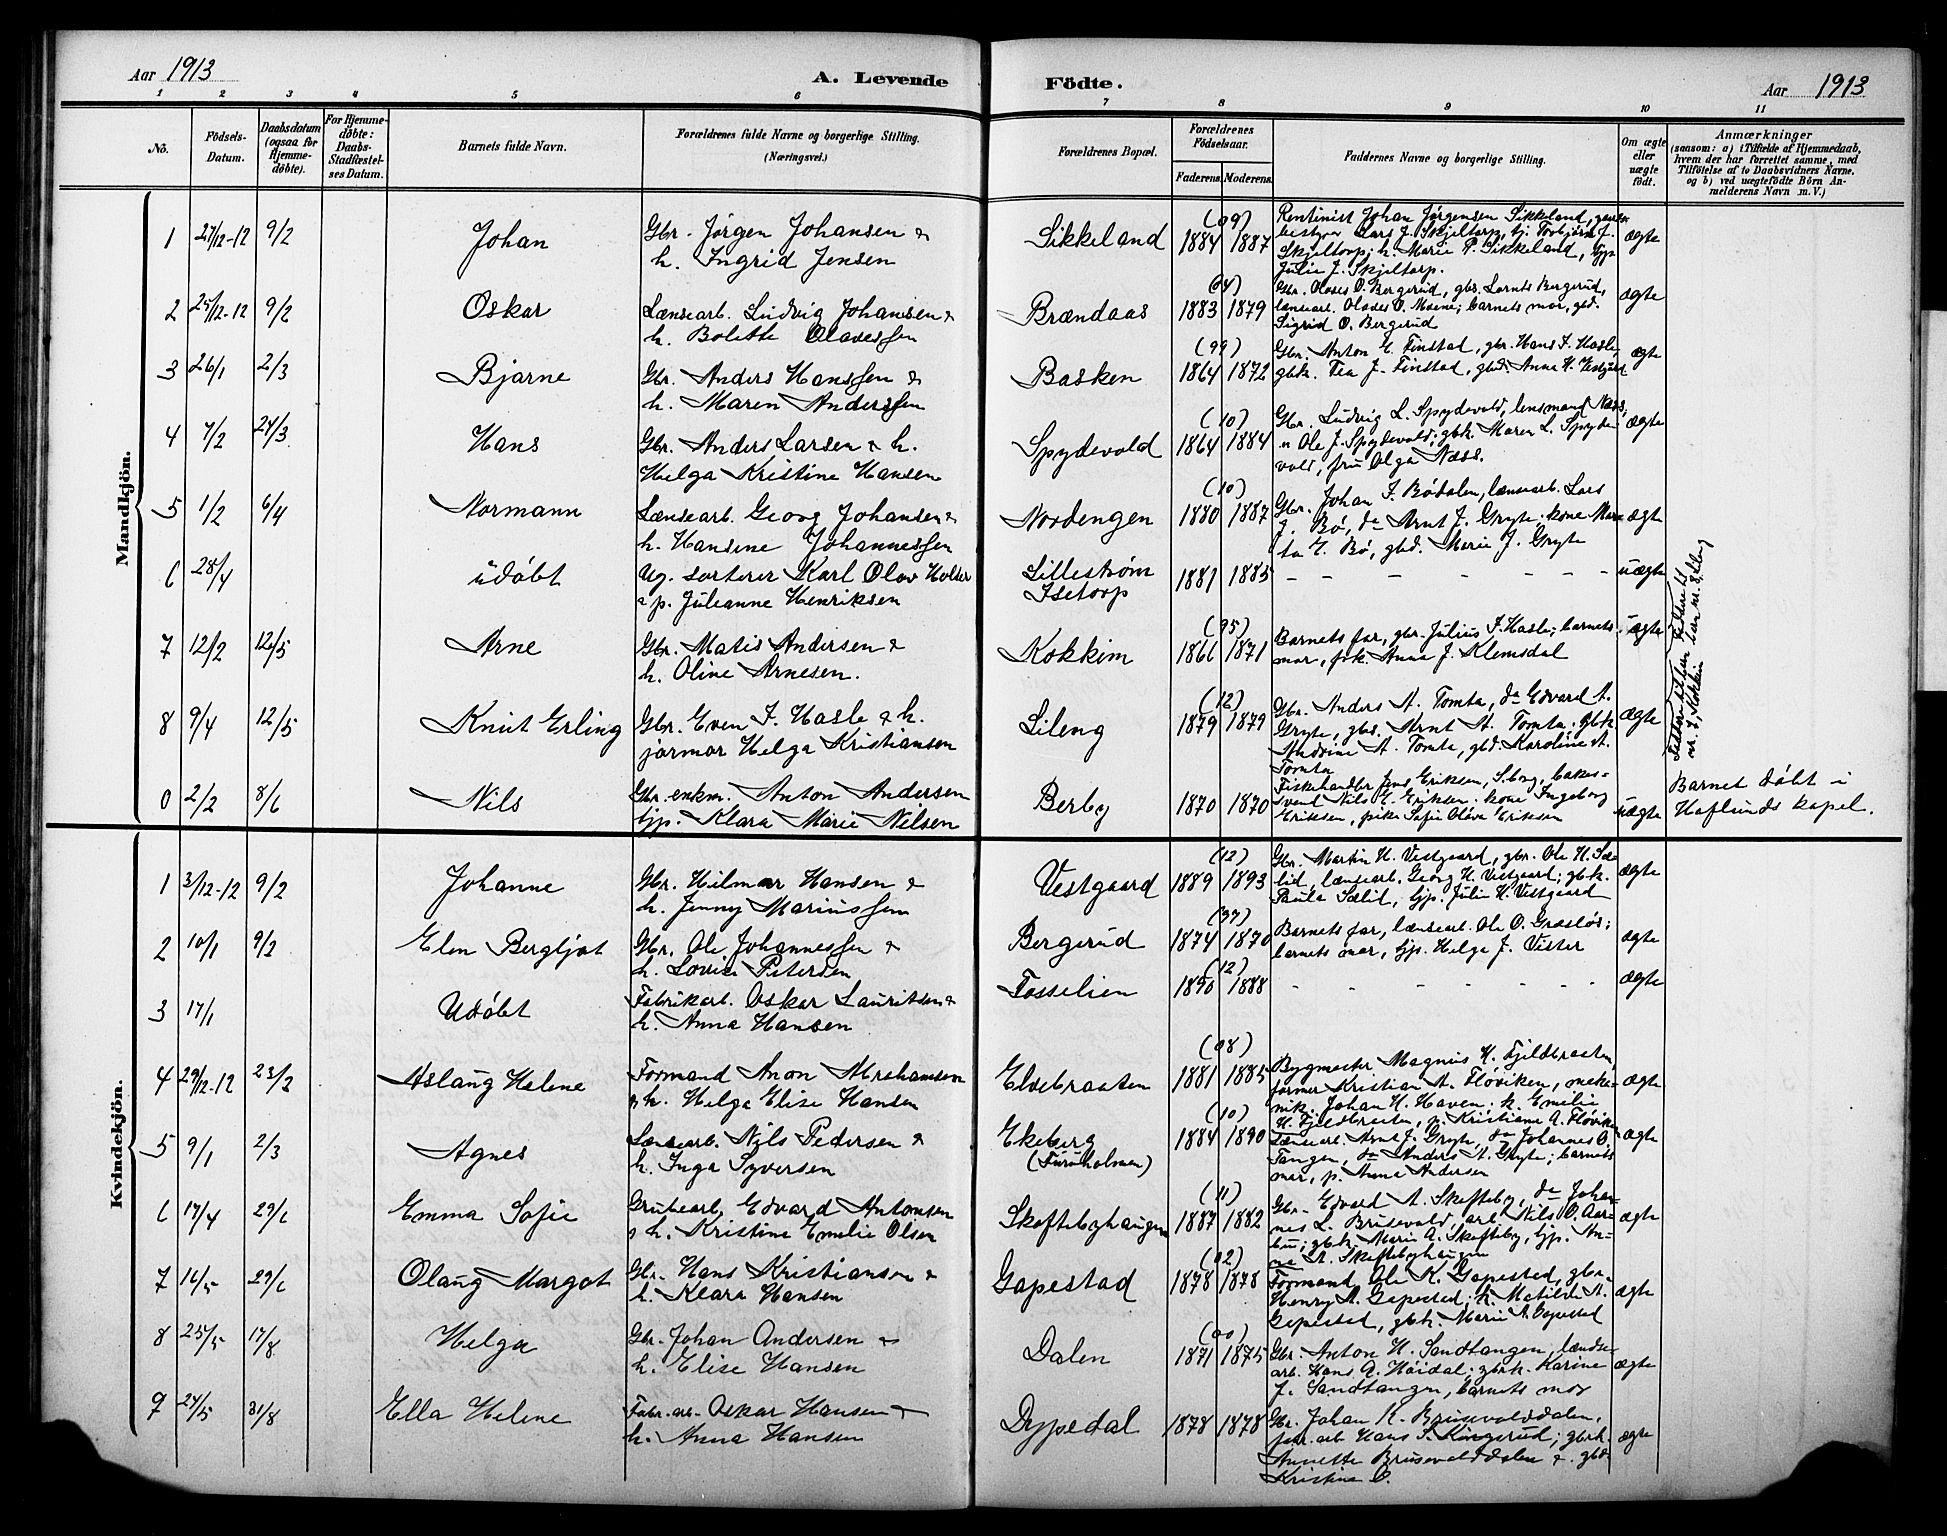 Aar 1913
A. Levende Födte.
Aar 1913
1 2 3 4 5 6 7 8 9 10 11
No.
Födsels-Datum.
Daabsdatum (ogsaa for Hjemme-döbte).
For Hjemme-döbte: Daabs-Stadfæstel-ses Datum.
Barnets fulde Navn.
Forældrenes fulde Navne og borgerlige Stilling. (Næringsvei.)
Forældrenes Bopæl.
Forældrenes Födselsaar.
Faderens. Moderens.
Faddernes Navne og borgerlige Stilling.
Om ægte eller uægte födt.
Anmærkninger
(saasom: a) i Tilfælde af Hjemmedaab,
hvem der har forrettet samme, med
Tilföielse af to Daabsvidners Navne.
og b) ved uægtefödte Börn An-
melderens Navn m. V.)
Mandkjön.
1 27/12-12 9/2 Johan
Gbr. Jörgen Johansen &
h. Ingrid Jensen
Sikkeland (09) 1884 1887
Rentinist Johan Jørgensen Sikkeland, gaards-
bestyrer Lars J. Skjeltorp, tj. Torbjørn J.
Skjeltorp; h. Marie P. Sikkeland, tjp.
Julie J. Skjeltorp.
ægte
2 25/12-12 9/2 Oskar
Lænsearb. Ludvig Johansen &
h. Bolette Olavessen
Brændaas (04) 1883 1879
Gbr. Olaves O. Bergerud, gbs. Lornts Bergerud,
lænsearb. Olaves O. Moene; barnets mor, gbd.
Sigrid O. Bergerud
ægte
3 26/1 2/3 Bjarne
Gbr. Anders Hanssen &
h. Maren Anderssen
Basken (99) 1864 1872
Gbr. Anton E. Finstad, gbr. Hans J. Hasle,
gbk. Tea J. Finstad, gbd. Anna H. Vestgård
ægte
4 7/2 24/3 Hans
Gbr. Anders Larsen & h.
Helga Kristine Hansen
Spydevold (10) 1864 1884
Gbr. Ludvig L. Spydevold, lensmand Næss,
" Ole J. Spydevold; gbk. Maren L. Spyde-
vold, fru Olga Næss.
ægte
5 1/2 6/4 Normann
Lænsearb. Georg Johansen &
h. Hansine Johannessen
Nordengen (10) 1880 1887
Gbr. Johan J. Bødalen, lænsearb. Lars
J. Bø, do Arnt J. Gryte; kone Mar-
ta E. Bø, gbd. Marie J. Gryte
ægte
6 28/4 udöbt
Ug. sorterer Karl Olav Holder
& p. Julianne Henriksen
Lillestrøm
Isetorp
1881 1885
- - - - - - -
uægte
7 12/2 12/5 Arne
Gbr. Matis Andersen &
h. Oline Arnesen.
Kokkim (95) 1866 1871
Barnets far, gbr. Julius J. Hasle; barnets
mor, frk. Anna J. Klemsdal
ægte
8 9/4 12/5 Knut Erling
Gbr. Even J. Hasle & h.
jormor Helga Kristiansen
Lileng (12) 1879 1879
Gbr. Anders A. Tomta, do Edvard A.
Gryte, gbs. Arnt A. Tomta; gbk
Andrine A. Tomta, gbd. Karoline A.
Tomta
ægte
0 2/2 8/6 Nils
Gbr. enkm. Anton Andersen
tjp. Klara Marie Nilsen
Berby 1870 1870
Fiskehandler Jens Eriksen, S.borg, bakes-
svend Nils E. Eriksen; kone Ingeborg
Eriksen, pike Sofie Olava Eriksen
uægte
Barnet döbt i
Haflunds kapel.
Kvindekjön.
1 3/12-12 9/2 Johanne
Gbr. Hilmar Hansen &
h. Jenny Mariussen
Vestgaard (12) 1889 1893
Gbr. Martin H. Vestgaard, gbr. Ole H. Sæ-
lid, lænsearb. Georg H. Vestgaard; gbk.
Paula Sælid, tjp. Julie H. Vestgaard
ægte
2 10/1 9/2 Elen Bergljot
Gbr. Ole Johannessen &
h. Lovise Petersen
Bergerud (97) 1874 1870
Barnets far, lænsearb. Ole O. Græsløs;
barnets mor, tjp. Helga J. Vister
ægte
3 17/1 Udöbt
Fabrikarb. Oskar Lauritsen &
h. Anna Hansen
Fosselien (12) 1890 1888
- - - - - - -
ægte
4 29/12-12 23/2 Aslaug Helene
Formand Anon Abrahamsen
& h. Helga Elise Hansen
Eldebraaten (08) 1881 1885
Bygmester Magnus H. Fjeldbraaten,
former Kristian A. Fløviken, meka-
nik. Johan H. Haven; k. Emilie
H. Fjeldbraaten, p. Kristiane A. Fløviken
ægte
5 9/1 2/3 Agnes
Lænsearb. Nils Pedersen &
h. Inga Syversen
Ekeberg
(Furuholmen)
(10) 1884 1890
Lænsearb. Arnt J. Gryte, do Johannes O.
Tangen, do Anders A. Gryte; barnets
mor, p. Anna Andersen
ægte
6 17/4 29/6 Emma Sofie
Grubearb. Edvard Antonsen
& h. Kristine Emelie Olsen
Skoftebyhaugen (11) 1887 1882
Gbr. Edvard A. Skofteby, do Johan-
nes L. Brusevold, arb. Nils O. Aare-
bu; gbk. Marie A. Skofteby, tjp. An-
na A. Skoftebyhaugen
ægte
7 16/5 29/6 Olaug Margot
Gbr. Hans Kristiansen &
h. Klara Hansen
Gapestad (02) 1878 1878
Formand Ole K. Gapestad, gbr.
Henry A. Gapestad; k. Matilde A.
Gapestad, gbk. Marie A. Gapestad
ægte
8 25/5 17/8 Helga
Gbr. Johan Andersen &
h. Elise Hansen
Dalen (00) 1871 1875
Gbr. Anton H. Sandtangen, lændse-
arb. Hans A. Høidal; gbrk. Karine
J. Sandtangen, barnets mor
ægte
9 24/5 31/8 Ella Helene
Fabr. arb. Oskar Hansen &
h. Anna Hansen
Dypedal 1878 1878
Gbr. Johan K. Brusevolddalen,
fabr. arb. Hans S. Kingsrud; gbrk.
Annette Brusevolddalen &. gbd.
Kristine O.
ægte